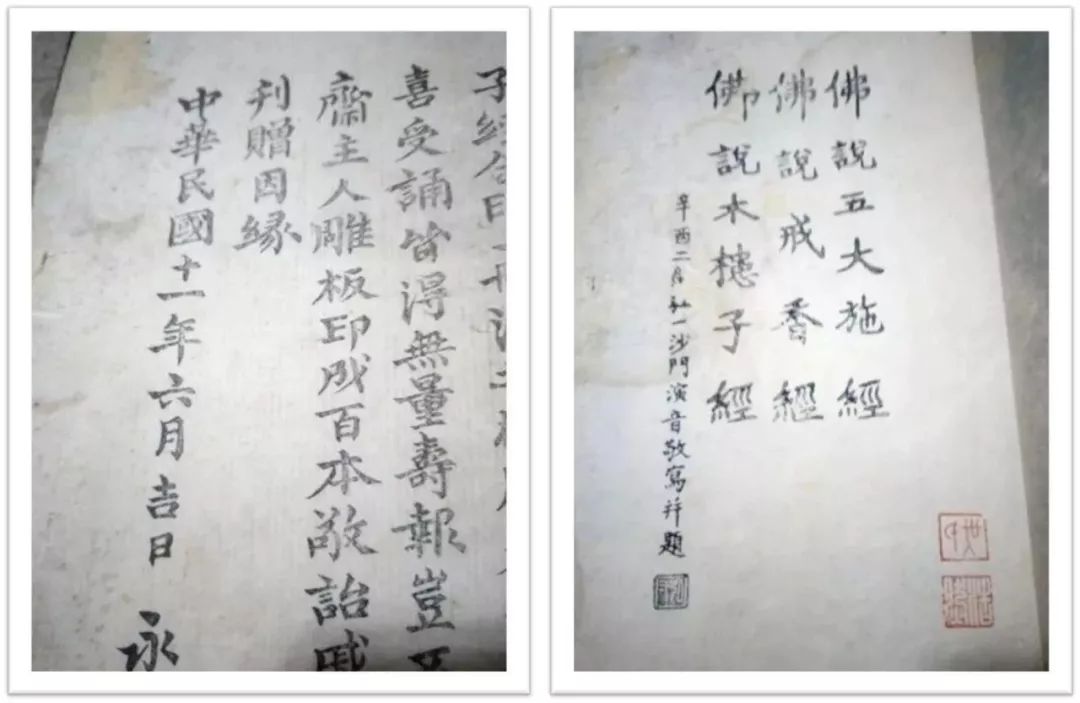 子經合印一冊
喜受誦皆得無量壽報豈不
齋主人雕板印成百本敬詒戚
刋贈因緣
中華民國十一年六月吉日 永
佛說五大施經
佛說戒香經
佛說木槵子經
辛酉二月弘一沙門演音敬寫并題